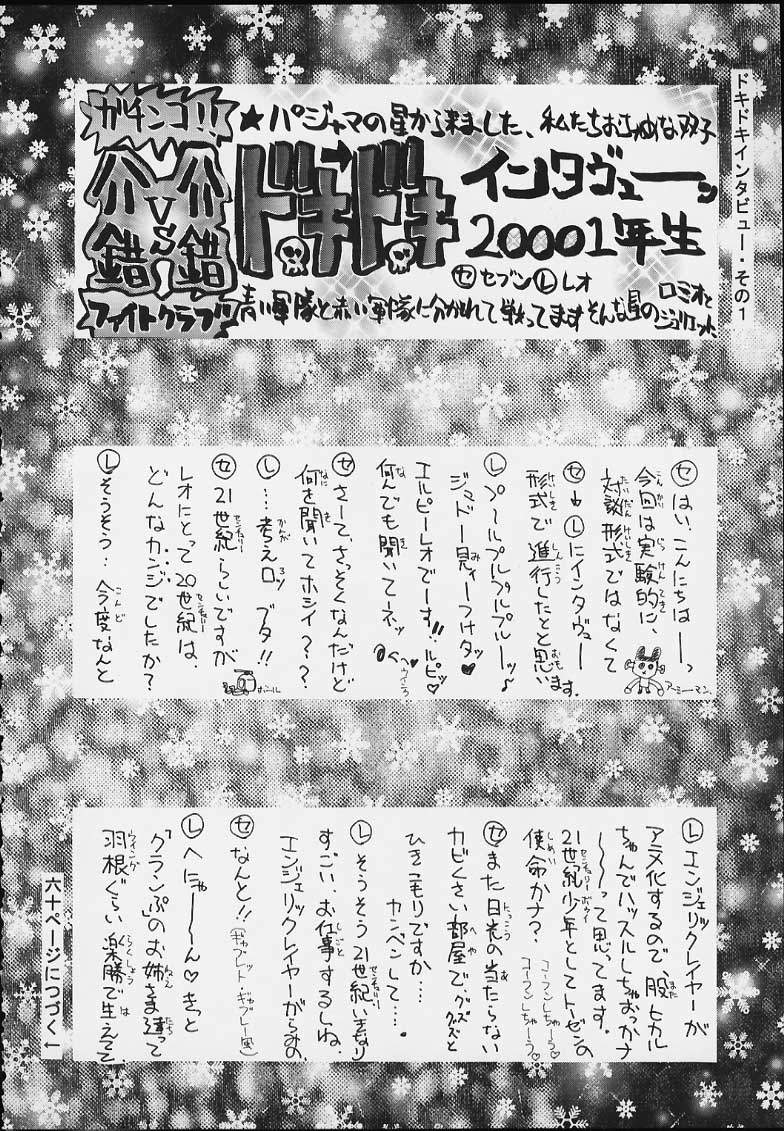 ドキドキインタビュー・その1
ガチンコ!!
介錯VS介錯
ファイトクラブッ
★パジャマの星から来ました、私たちおちゃめな双子
ドキドキ
インタヴューーッ
20001年生
㋝セブン Ⓛレオ
青い軍隊と赤い軍隊に分かれて戦ってますそんな星のロミオとジュリエット
㋝はい、こんにちはーーっ
今回は実験的に、
対談形式ではなくて
㋝→ⓁにインタヴューI
形式で進行したとと思います。
アーミーマン。
Ⓛプ〜ルプルプルプルーッ♪
ジュドー見ィーつけタッ♥
エルピーレオでーす!!ルピッ♡
何んでも聞いてーネッ
㋝さーて、さっそくなんだけど
何を聞いてホシイ??
Ⓛ…考えロッ ブタ!!
㋝21世紀らしいですが
ボール
レオにとって20世紀は、
どんなカンジでしたか?
Ⓛそうそう‥今度なんと
Ⓛエンジェリックレイヤーが
アニメ化するので、股ヒカル
ちゃんでハッスルしちゃおっかナ
〜〜〜って思ってます。
21世紀少年としてトーゼンの
使命かナ? コーフンしちゃーう♡
コーフンしちゃーう♡
㋝また日光の当たらない
カビくさい部屋で、グズグズと
ひきこもりですか…
カンベンして….
Ⓛそうそう21世紀いきなり
すごい、お仕事するしね、
エンジェリックレイヤーがらみの
㋝なんと!!(ギャブレット・ギャブレー風)
Ⓛへにゃーーん♡きっと
「クランぷ」のお姉さま達って
羽根ぐらい楽勝で生えてて
六十ページにつづく←